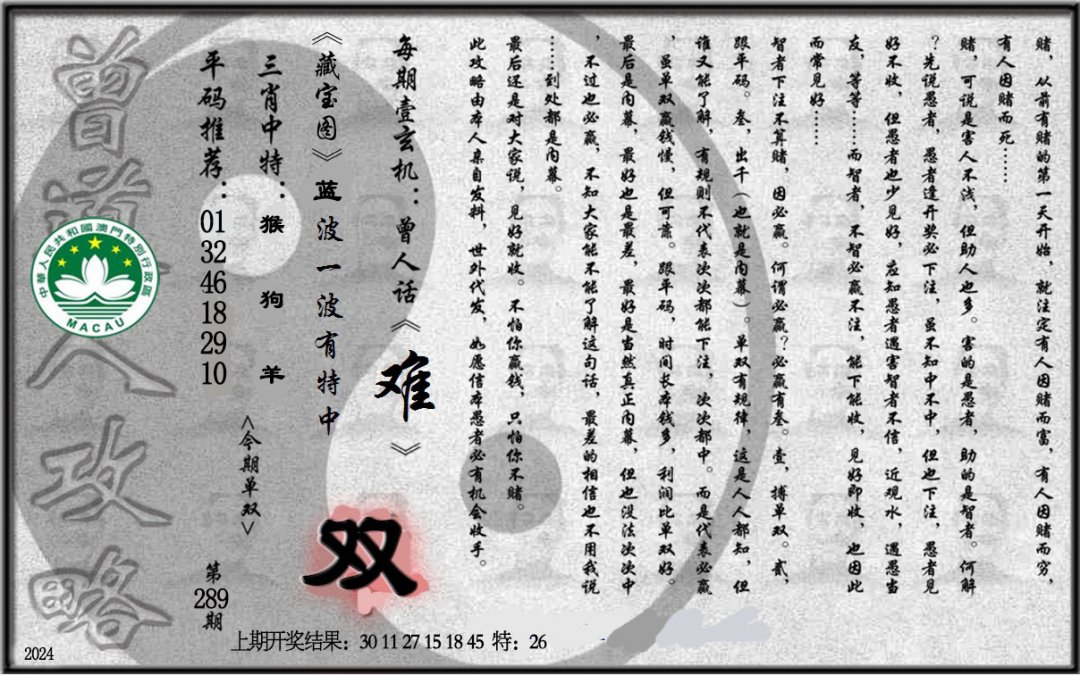 赌，从前有赌的第一天开始，就注定有人因赌而富，有人因赌而穷，
有人因赌而死……
赌，可说是害人不浅，但助人也多。害的是愚者，助的是智者。何解
？先说愚者，愚者逢开奖必下注，虽不知中不中，但也下注，愚者见
好不收，但愚者也少见好，应知愚者遇害智者不信，近观水，遇愚当
友，等等……而智者，不智必赢不注，能下能收，见好即收，也因此
而常见好……
智者下注不算赌，因必赢。何谓必赢？必赢有叁。壹，搏单双。贰，
跟平码。叁，出千（也就是内幕）。单双有规律，这是人人都知，但
谁又能了解，有规则不代表次次都能下注，次次都中。而是代表必赢
，虽单双赢钱慢，但可靠。跟平码，时间长本钱多，利润比单双好。
最后是内幕，最好也是最差，最好是当然真正内幕，但也没法次次中
，不过也必赢，不知大家能不能了解这句话，最差的相信也不用我说
……到处都是内幕。
最后还是对大家说，见好就收。不怕你赢钱，只怕你不赌。
此攻略由本人亲自发料，世外代发，如愿信本愚者必有机会收手。
每期壹玄机：曾人话《难》
《藏宝图》蓝波一波有特中
双
三肖中特：猴狗羊
<今期单双>
平码推荐：
01
32
46
18
29
10
第
289
期
曾道人攻略
中華人民共和國澳門特別行政區
MACAU
上期开奖结果：30 11 27 15 18 45 特：26
2024